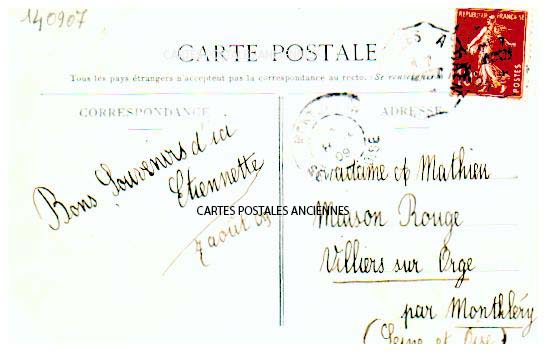 140907
REPUBLIQUE FRANÇAISE
POSTES
CARTE POSTALE
Tous les pays étrangers n'acceptent pas la correspondance au recto. (Se renseigner
CORRESPONDANCE
ADRESSE
Bons Souvenirs d'ici
Etiennette
7 août 09
CARTES POSTALES ANCIENNES
Madame A Mathieu
Maison Rouge
Villiers sur Orge
par Monthléry
(Seine et Oise)